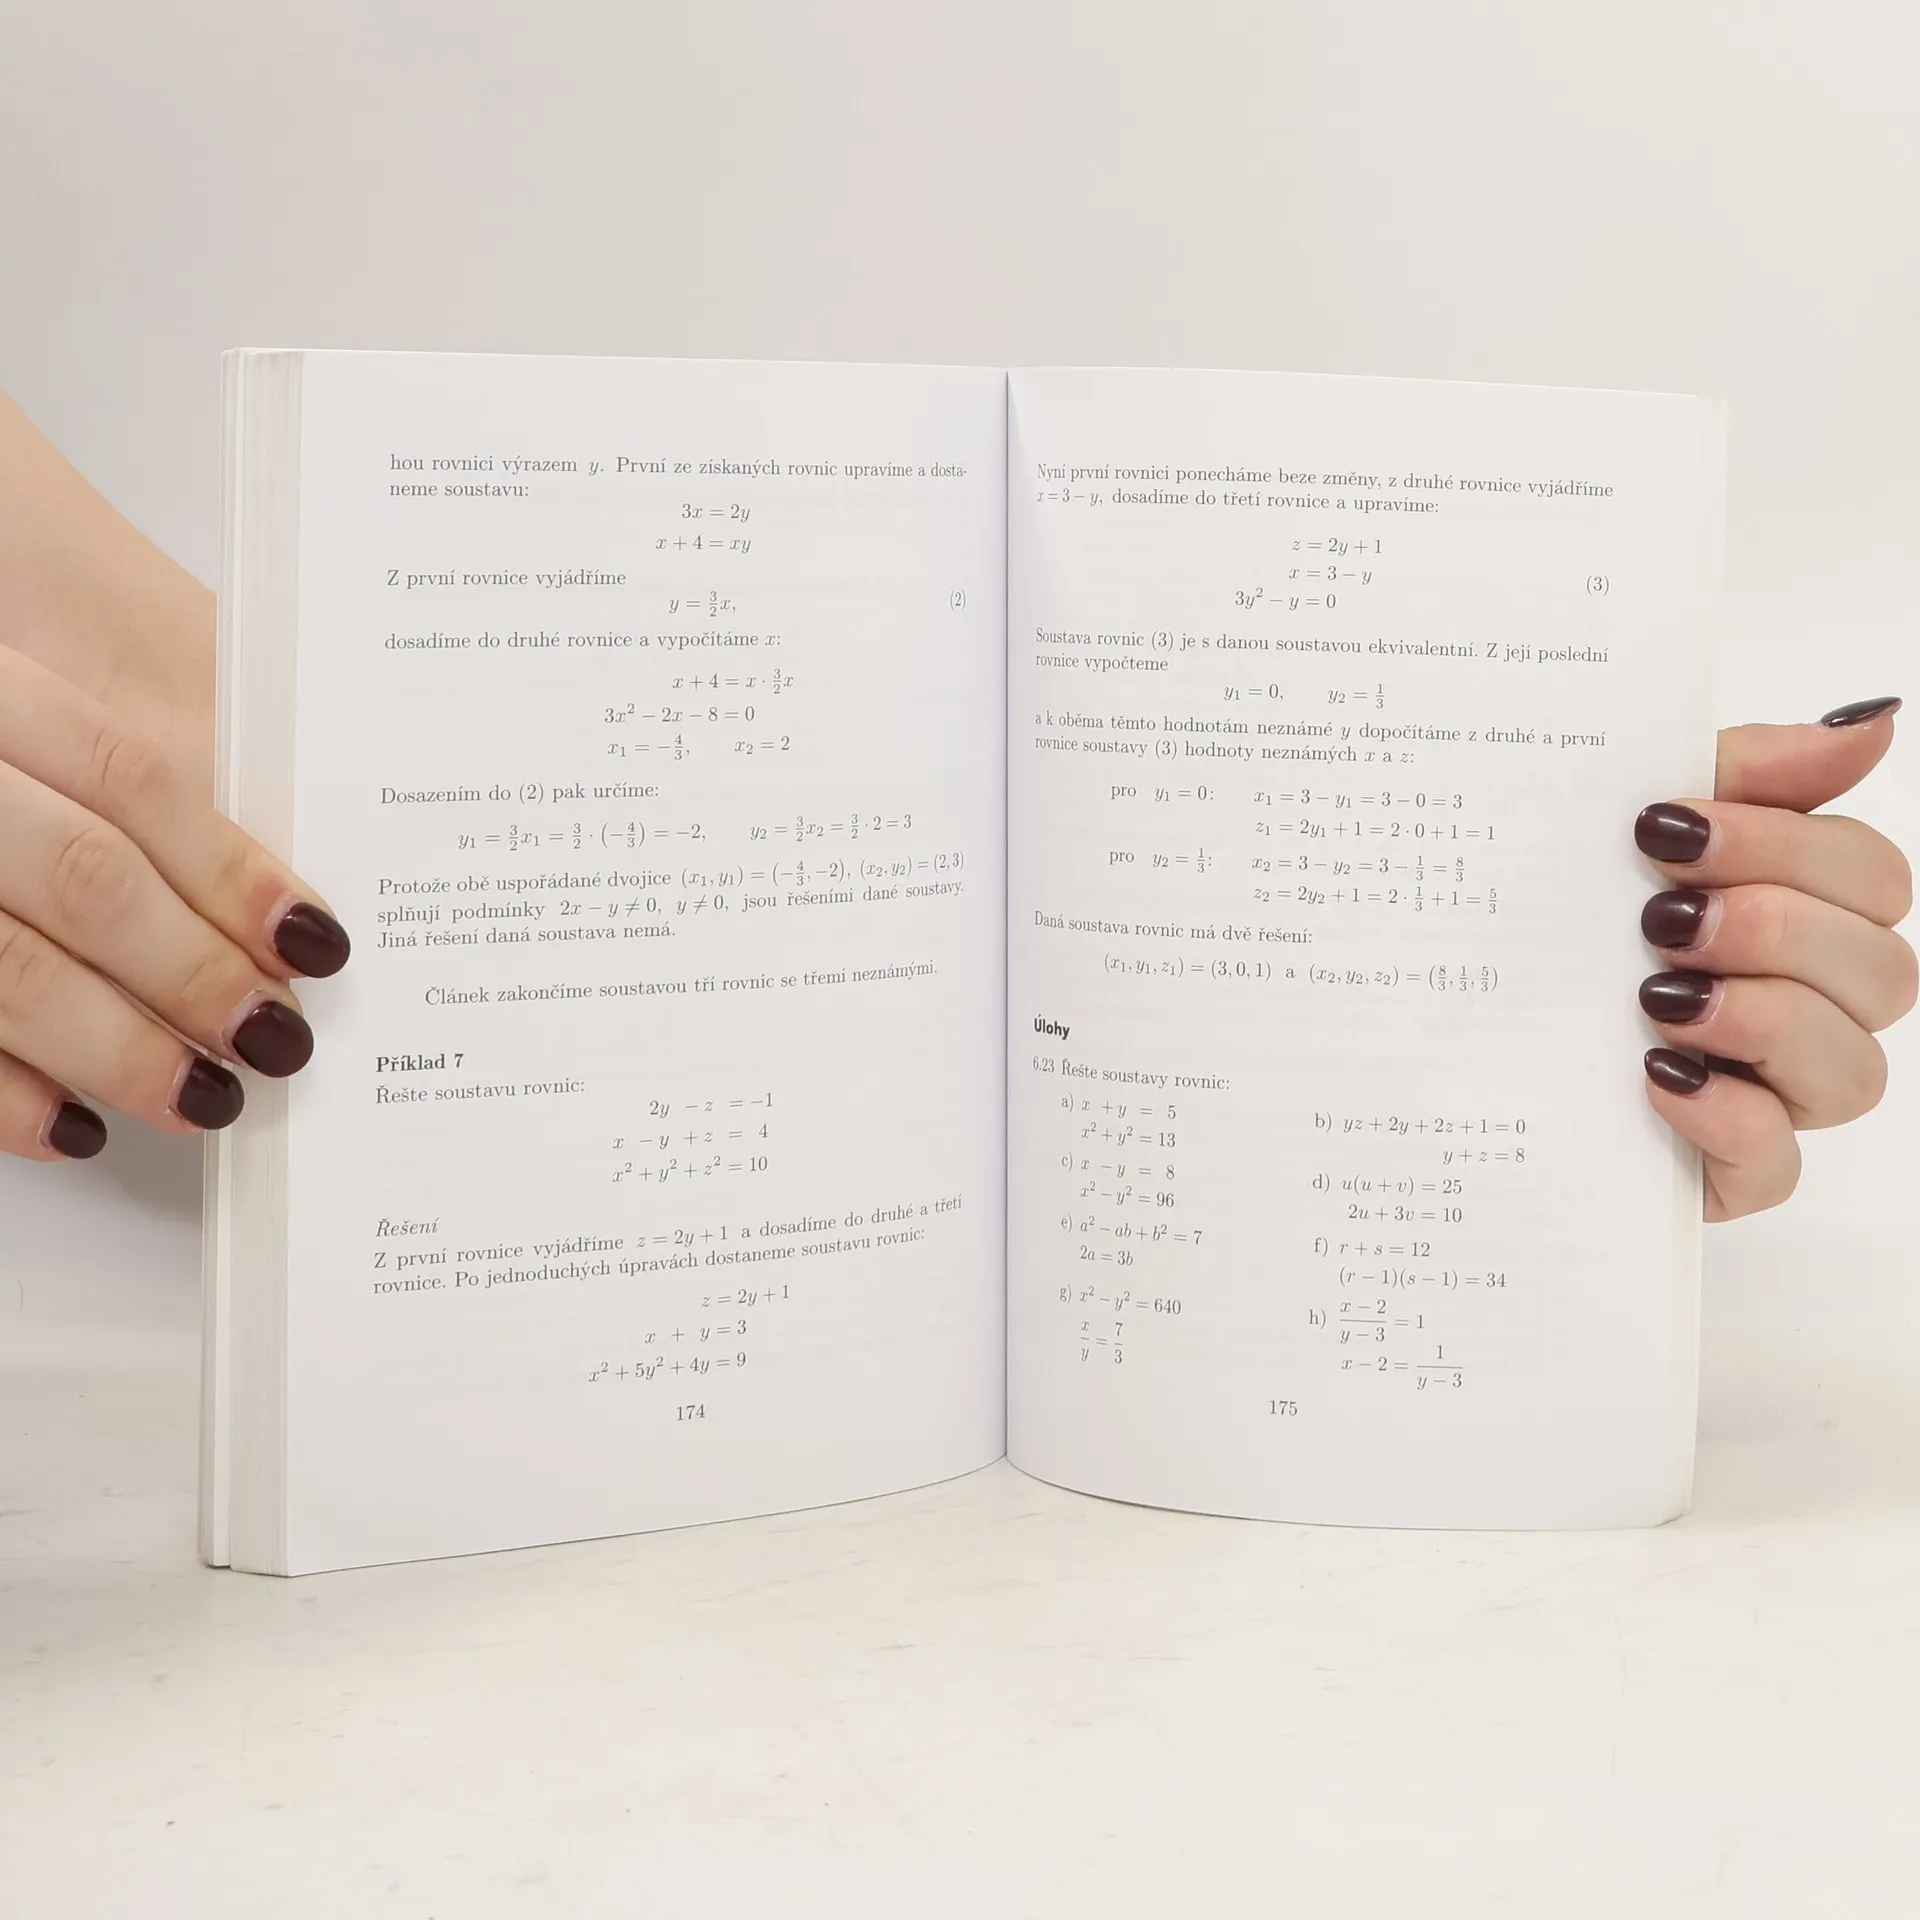 hou rovnici výrazem y. První ze získaných rovnic upravíme a dosta-
neme soustavu:
3x = 2y
x + 4 = xy
Z první rovnice vyjádříme
y = 3/2 x, (2)
dosadíme do druhé rovnice a vypočítáme x:
x + 4 = x · 3/2 x
3x² − 2x − 8 = 0
x₁ = −4/3, x₂ = 2
Dosazením do (2) pak určíme:
y₁ = 3/2 x₁ = 3/2 · (−4/3) = −2, y₂ = 3/2 x₂ = 3/2 · 2 = 3
Protože obě uspořádané dvojice (x₁, y₁) = (−4/3, −2), (x₂, y₂) = (2, 3)
splňují podmínky 2x − y ≠ 0, y ≠ 0, jsou řešeními dané soustavy.
Jiná řešení daná soustava nemá.
Článek zakončíme soustavou tří rovnic se třemi neznámými.
Příklad 7
Řešte soustavu rovnic:
2y − z = −1
x − y + z = 4
x² + y² + z² = 10
Řešení
Z první rovnice vyjádříme z = 2y + 1 a dosadíme do druhé a třetí
rovnice. Po jednoduchých úpravách dostaneme soustavu rovnic:
z = 2y + 1
x + y = 3
x² + 5y² + 4y = 9
174
Nyní první rovnici ponecháme beze změny, z druhé rovnice vyjádříme
x = 3 − y, dosadíme do třetí rovnice a upravíme:
z = 2y + 1
x = 3 − y (3)
3y² − y = 0
Soustava rovnic (3) je s danou soustavou ekvivalentní. Z její poslední
rovnice vypočteme
y₁ = 0, y₂ = 1/3
a k oběma těmto hodnotám neznámé y dopočítáme z druhé a první
rovnice soustavy (3) hodnoty neznámých x a z:
pro y₁ = 0: x₁ = 3 − y₁ = 3 − 0 = 3
z₁ = 2y₁ + 1 = 2 · 0 + 1 = 1
pro y₂ = 1/3: x₂ = 3 − y₂ = 3 − 1/3 = 8/3
z₂ = 2y₂ + 1 = 2 · 1/3 + 1 = 5/3
Daná soustava rovnic má dvě řešení:
(x₁, y₁, z₁) = (3, 0, 1) a (x₂, y₂, z₂) = (8/3, 1/3, 5/3)
Úlohy
6.23 Řešte soustavy rovnic:
a) x + y = 5
x² + y² = 13
b) yz + 2y + 2z + 1 = 0
y + z = 8
c) x − y = 8
x² − y² = 96
d) u(u + v) = 25
2u + 3v = 10
e) a² − ab + b² = 7
2a = 3b
f) r + s = 12
(r − 1)(s − 1) = 34
g) x² − y² = 640
x/y = 7/3
h) (x − 2)/(y − 3) = 1
x − 2 = 1/(y − 3)
175